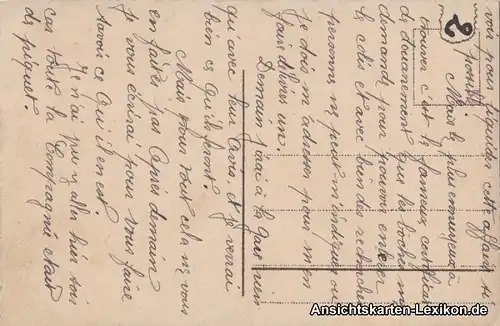 vous pour finir cette affaire si
possible.
Mais le plus ennuyeux à
trouver c'est le fameux certificat
de dédouanement que les boches me
demande pour pouvoir enlever
le colis et avec bien des recherches
personne ne peut m'indiquer où
je dois m'adresser pour m'en
faire délivrer un.
Demain j'irai à la Gare voir
qui avec leur avis et je verrai
bien ce qu'ils feront.
Mais pour tout cela ne vous
en faites pas Après demain
je vous écrirai pour vous faire
savoir ce qu'il en est.
Je n'ai pu y aller hier soir
car toute la Compagnie était
de piquet.
2
Ansichtskarten-Lexikon.de